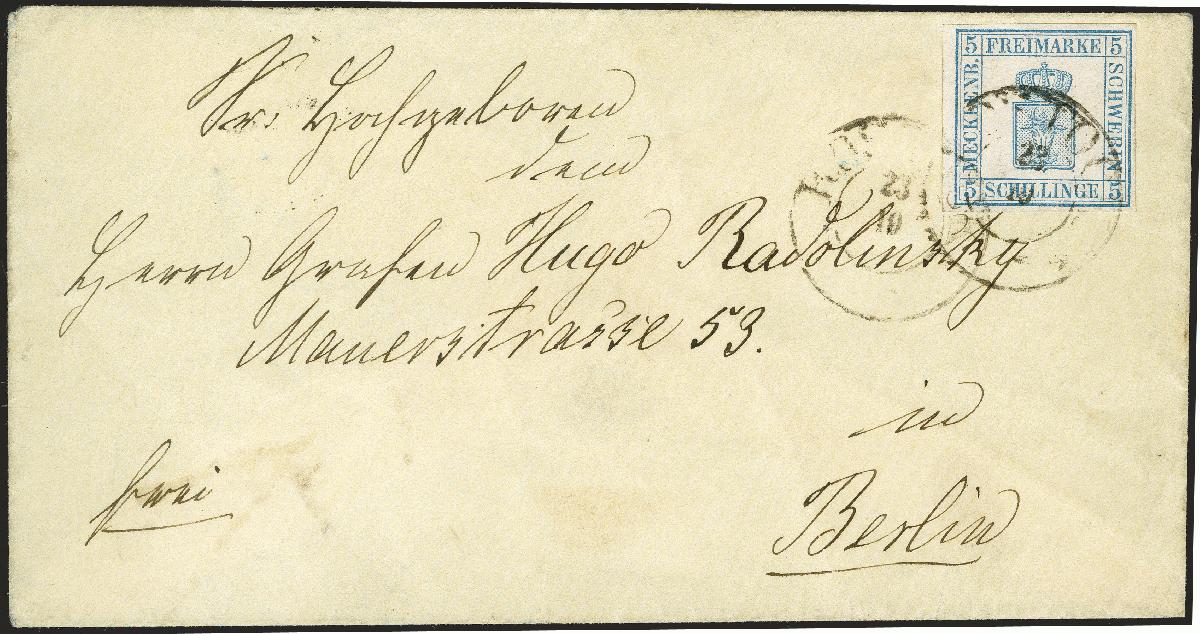 5 FREIMARKE 5
MECKLENB.
SCHWERIN
5 SCHILLINGE 5
23
10
23
10
Sr. Hochgeboren
dem
Herrn Grafen Hugo Radolinsky
Mauerstrasse 53.
in
Berlin
frei